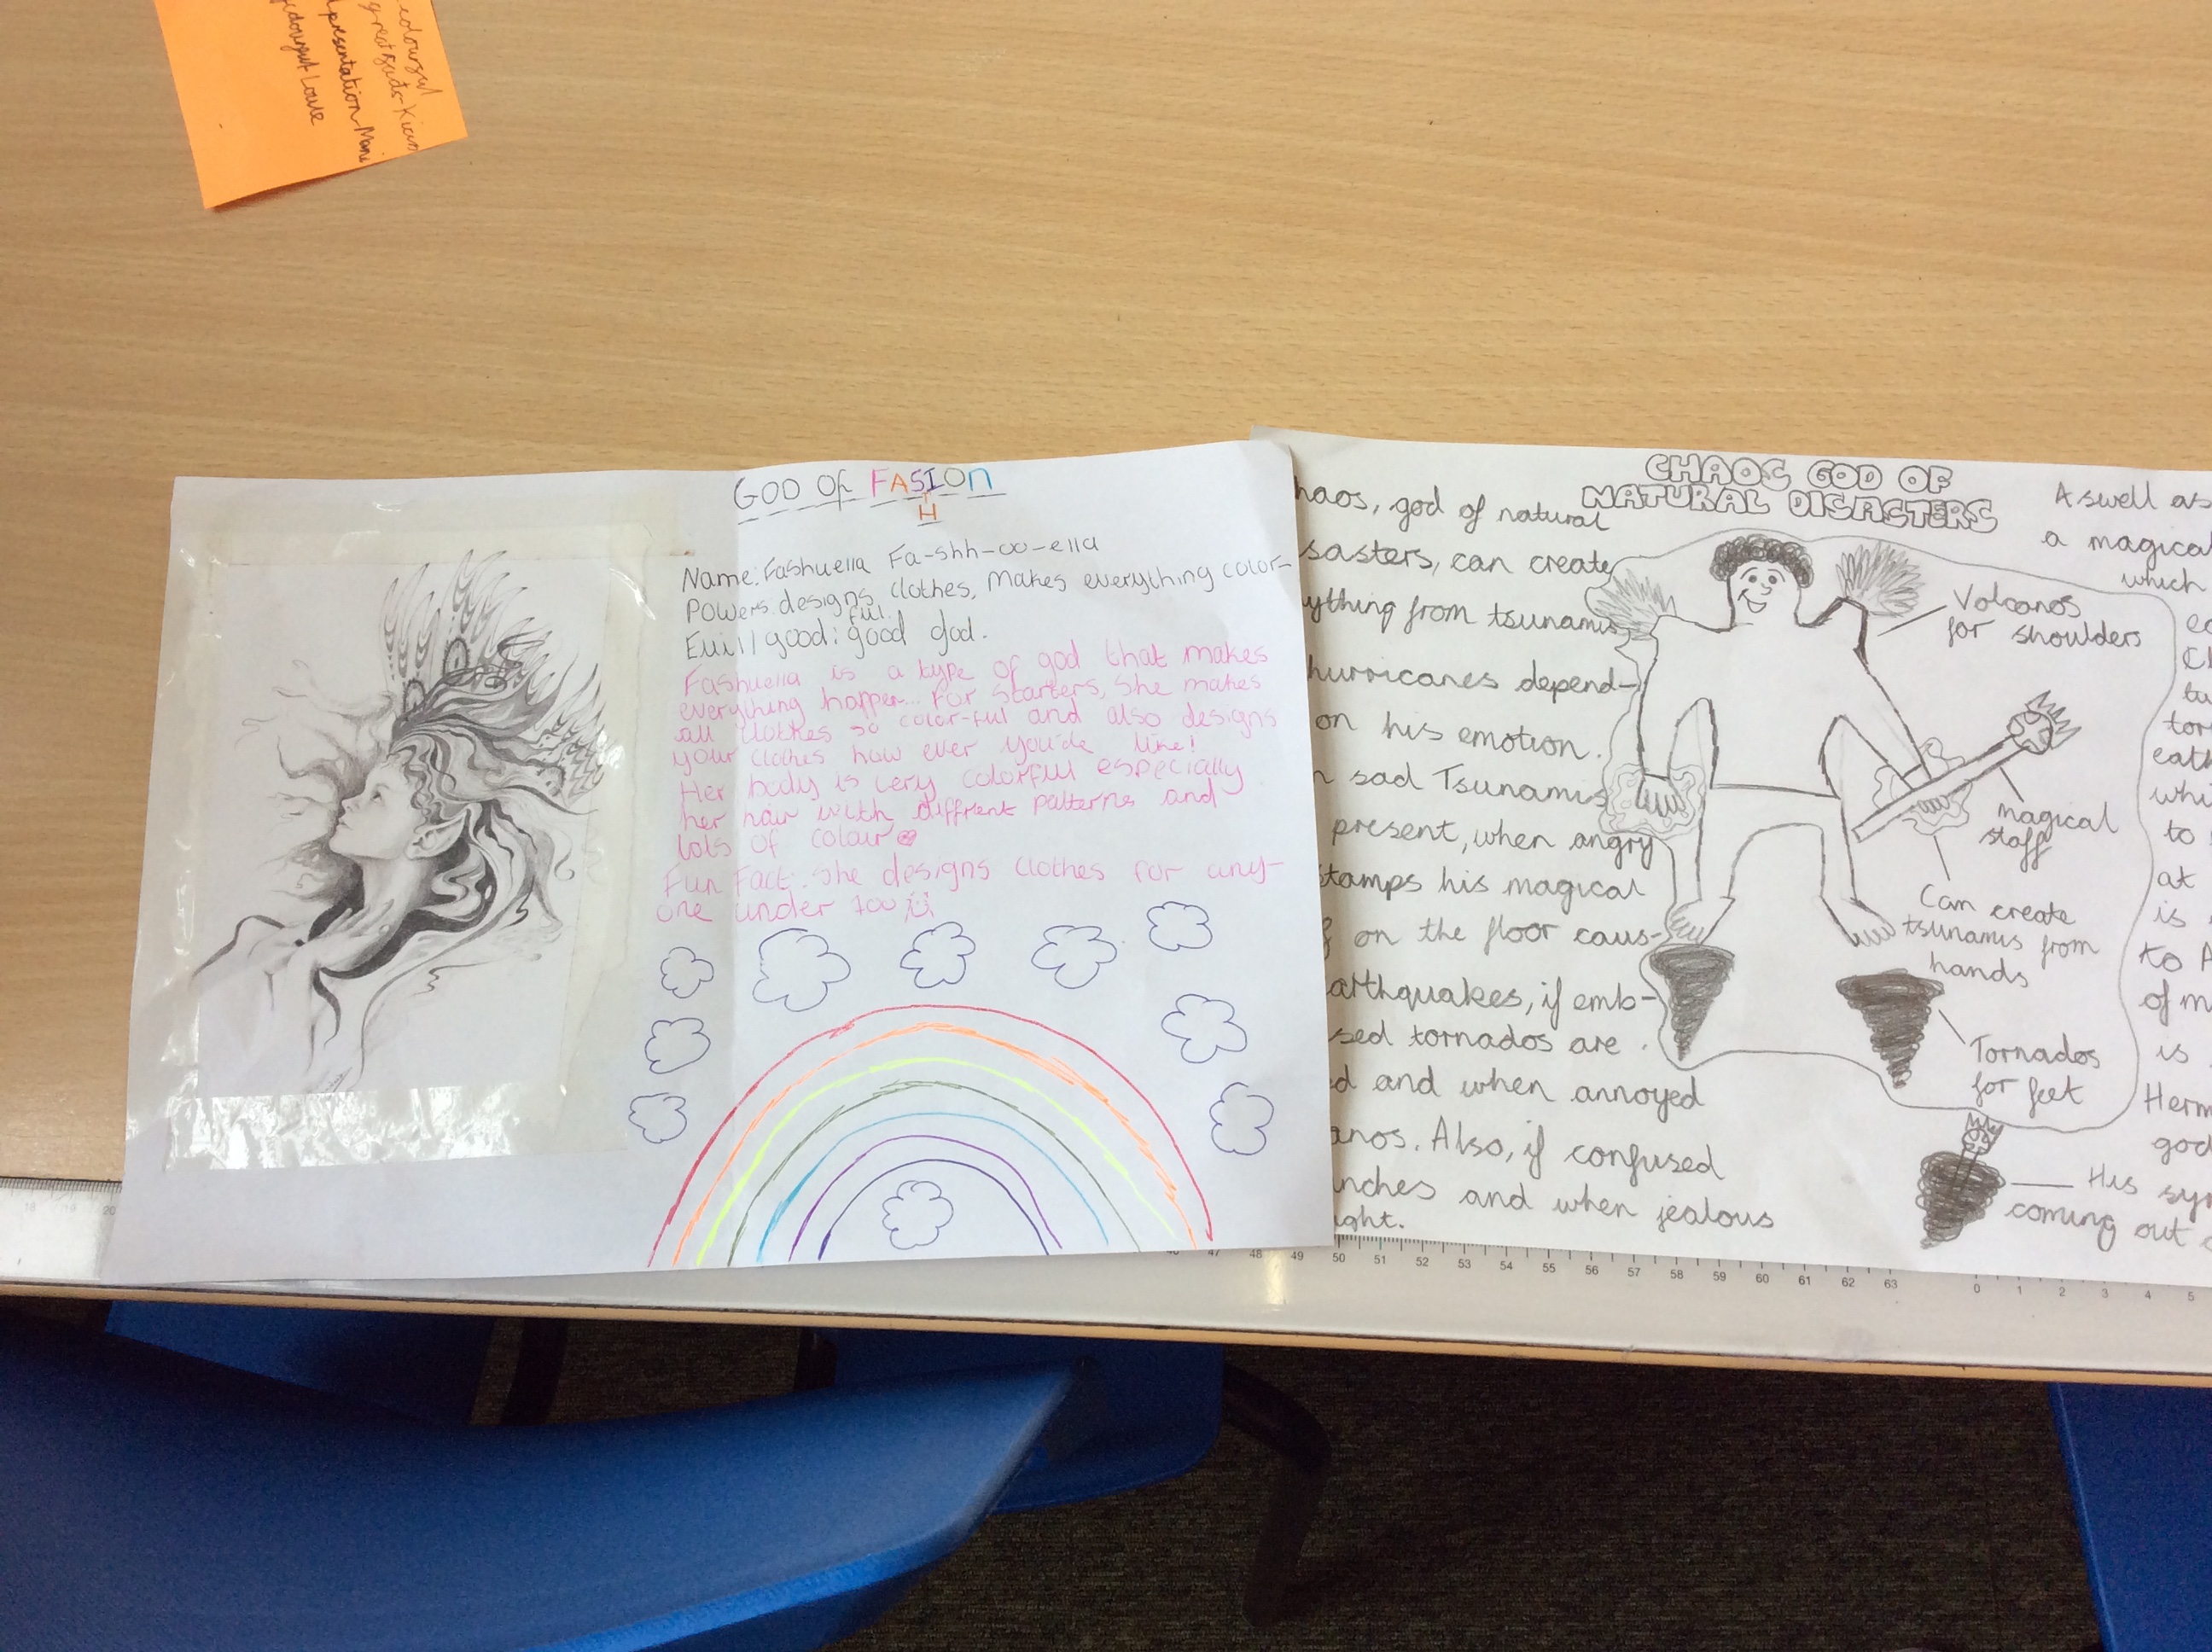 colourful
great gods-Kian
presentation-Mani
Louie
GOD OF FASION
H
Name: Fashuella Fa-shh-oo-ella
Powers: designs clothes, Makes everything color-
ful.
Euil/good: good god.
Fashuella is a type of god that makes
everything happen... For starters, She makes
all clothes so color-ful and also designs
your clothes how ever you'de like!
Her body is very colorful especially
her hair with diffrent patterns and
lots of colour
Fun Fact: she designs clothes for any-
one under 100
CHAOS GOD OF
NATURAL DISASTERS
haos, god of natural
sasters, can create
ything from tsunamis,
hurricanes depend-
on his emotion.
n sad Tsunamis
present, when angry
stamps his magical
f on the floor caus-
arthquakes, if emb-
sed tornados are
ed and when annoyed
anos. Also, if confused
nches and when jealous
ught.
Volcanos
for shoulders
magical
staff
Can create
tsunamis from
hands
Tornados
for feet
His sym
coming out o
Aswell as
a magical
which
ea
Ch
tu
tor
eath
whi
to
at
is
to A
of m
is
Herm
god
18 19 20
46 47 48 49 50 51 52 53 54 55 56 57 58 59 60 61 62 63
0 1 2 3 4 5